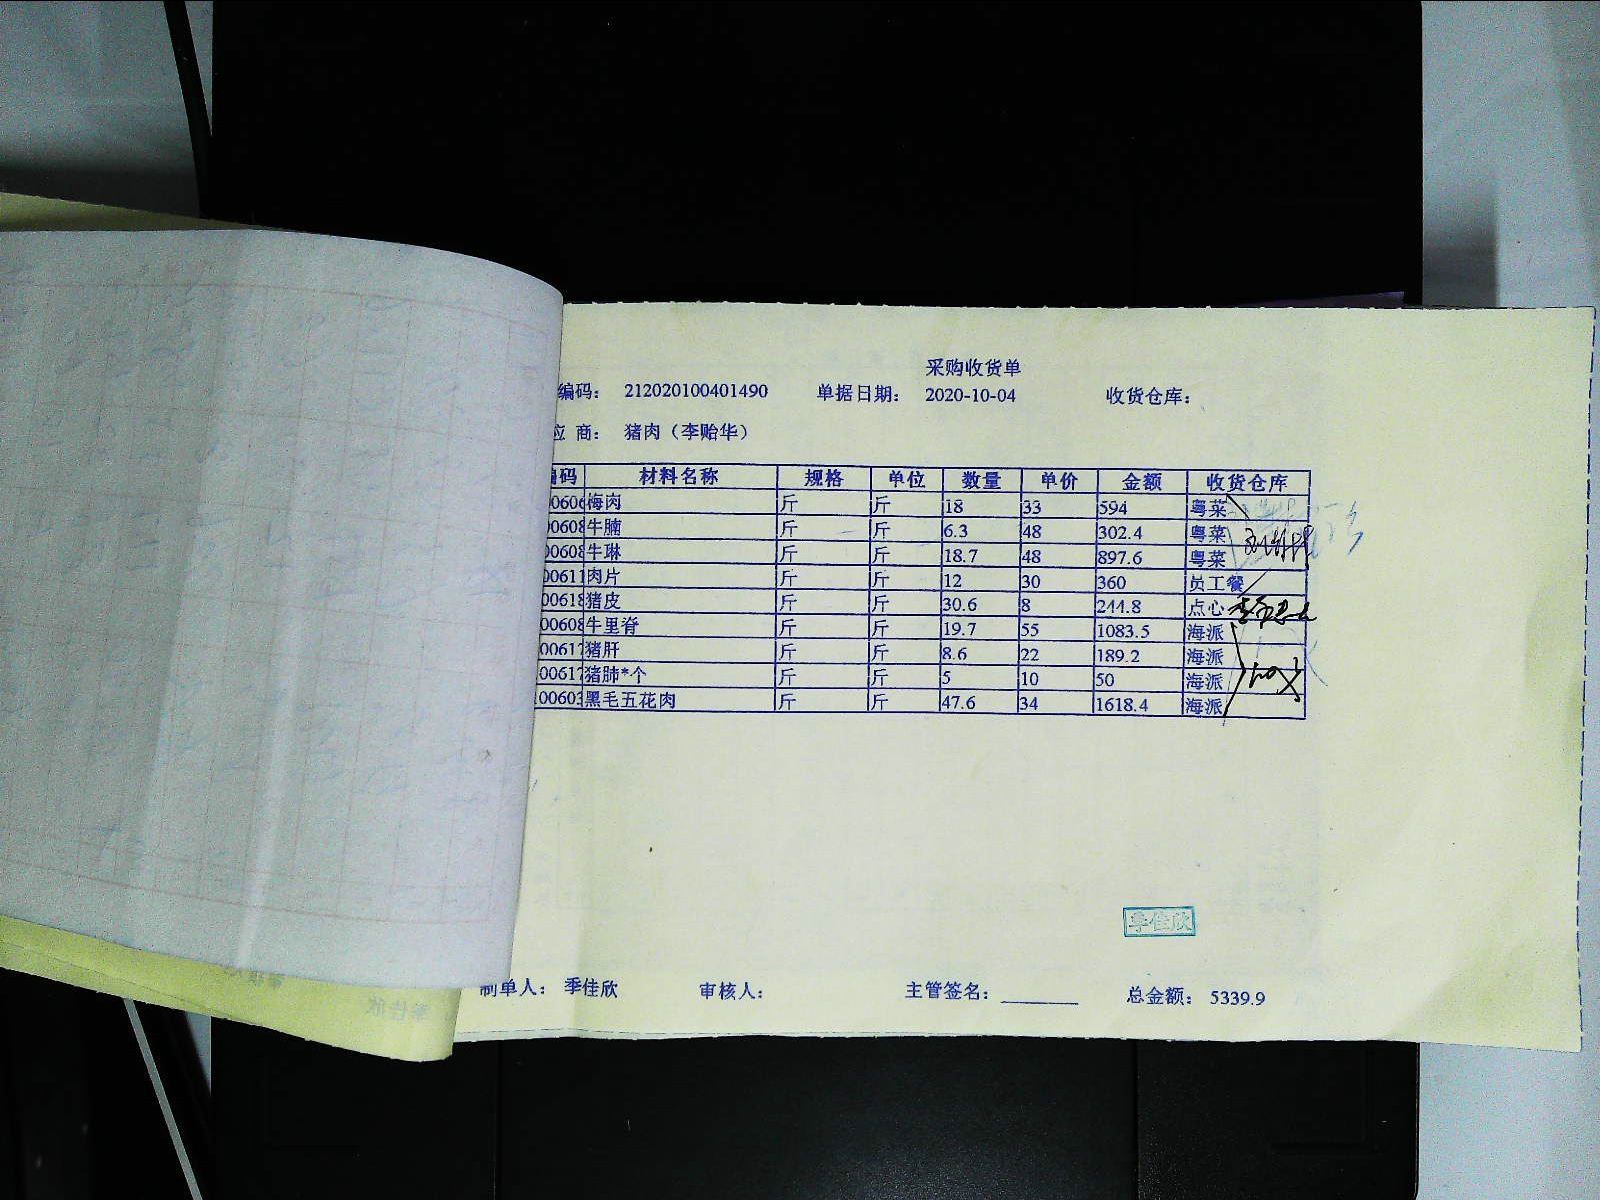 采购收货单
编码： 212020100401490 单据日期： 2020-10-04 收货仓库：
应 商： 猪肉（李贻华）
编码 材料名称 规格 单位 数量 单价 金额 收货仓库
00606 梅肉 斤 斤 18 33 594 粤菜
00608 牛腩 斤 斤 6.3 48 302.4 粤菜
00608 牛琳 斤 斤 18.7 48 897.6 粤菜
00611 肉片 斤 斤 12 30 360 员工餐
00618 猪皮 斤 斤 30.6 8 244.8 点心
00608 牛里脊 斤 斤 19.7 55 1083.5 海派
00617 猪肝 斤 斤 8.6 22 189.2 海派
00617 猪肺*个 斤 斤 5 10 50 海派
00603 黑毛五花肉 斤 斤 47.6 34 1618.4 海派
季佳欣
制单人： 季佳欣 审核人： 主管签名： 总金额： 5339.9